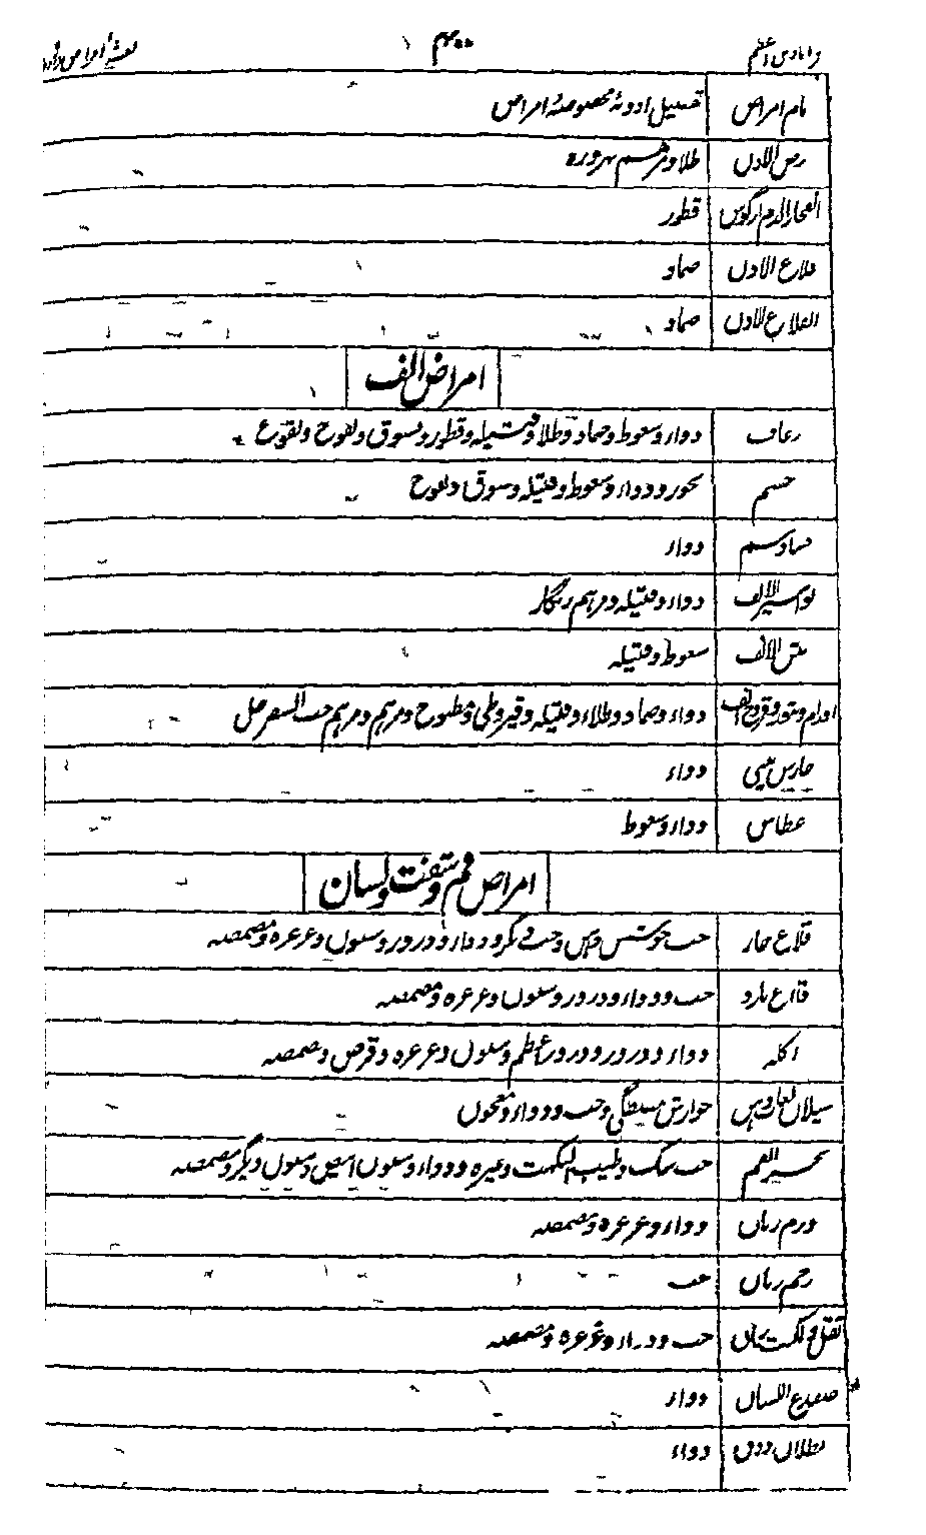 قرابادین اعظم ۴۰۰ نقشۂ امراض و ادویہ
نام امراض تفصیل ادویۂ مخصوصۂ امراض
رض الاذن طلا و مرہم
انفجار الدم از گوش قطور
قلاع الاذن ضماد
انقلاع الاذن ضماد
امراض انف
رعاف دواء و سعوط و ضماد و طلا و فتیلہ و قطور و نشوق و نفوخ و نقوع
خشم بخور و دواء و سعوط و فتیلہ و نشوق و نفوخ
فساد شم دواء
بواسیر الانف دواء و فتیلہ و مرہم زنگار
نتن الانف سعوط و فتیلہ
اورام و بثور و قروح انف دواء و ضماد و طلاء و فتیلہ و قیروطی و مطبوخ و مرہم و مرہم حب السفرجل
خارش بینی دواء
عطاس دواء و سعوط
امراض فم و شفت و لسان
قلاع حار حب و حب دیگر و دواء و ذرور و سنون و غرغرہ و مضمضہ
قلاع بارد حب و دواء و ذرور و سنون و غرغرہ و مضمضہ
اکلہ دواء و ذرور و ذرور اعظم و سنون و غرغرہ و قرص و مضمضہ
سیلان لعاب دہن جوارش مصطگی و حب و دواء و معجون
بخر الفم حب مسک و طیب النکہت و غیرہ و دواء و سنون ابیض و سنون دیگر و مضمضہ
ورم زبان دواء و غرغرہ و مضمضہ
زبان حب
ثقل و لکنت زبان حب و دواء و غرغرہ و مضمضہ
ضفدع اللسان دواء
بطلان ذوق دواء